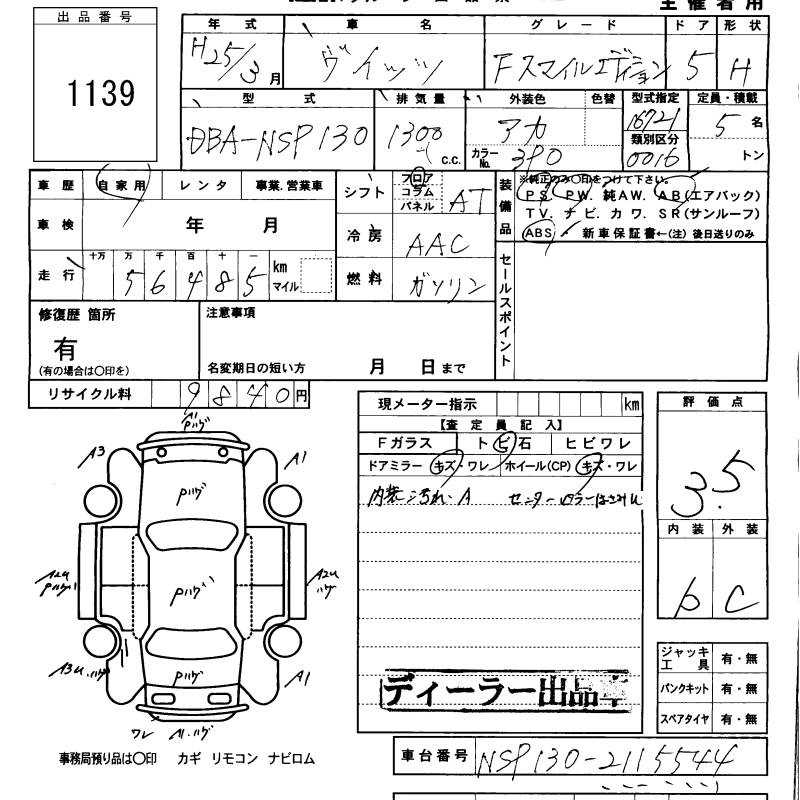 主催者用
出品番号
1139
年式 車名 グレード ドア 形状
H25/3月 ヴィッツ Fスマイルエディション 5 H
型式 排気量 外装色 色替 型式指定 定員・積載
DBA-NSP130 1300 c.c. アカ カラーNo. 3P0 16721 類別区分 0016 5名 トン
車歴 自家用 レンタ 事業.営業車
車検 年 月
走行 十万 万 千 百 十 一
5 6 4 8 5 km マイル
シフト フロア コラム パネル AT
冷房 AAC
燃料 ガソリン
装備品 ※純正のみ○印をつけて下さい。
PS. PW. 純AW. AB(エアバック)
TV. ナビ. カワ. SR(サンルーフ)
ABS 新車保証書←(注) 後日送りのみ
セールスポイント
修復歴 箇所
有
(有の場合は○印を)
注意事項
名変期日の短い方 月 日まで
リサイクル料 9840円
現メーター指示 km
【査定員記入】
Fガラス トビ石 ヒビワレ
ドアミラー キズ・ワレ ホイール(CP) キズ・ワレ
内装汚れ・A
評価点
3.5
内装 外装
b C
A1
Pハゲ
A3 A1
Pハゲ
A2u Pハゲ
A2u ハゲ
Pハゲ
A3u.ハゲ
Pハゲ
A1
ワレ A1.ハゲ
ディーラー出品車
ジャッキ工具 有・無
パンクキット 有・無
スペアタイヤ 有・無
事務局預り品は○印 カギ リモコン ナビロム
車台番号 NSP130-2115544